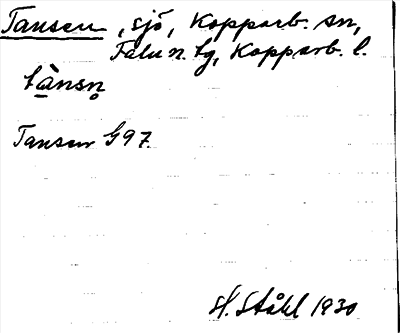 Tansen, sjö, Kopparb. sn,
Falu n. tg, Kopparb. l.
tà̲nsn̥
Tansen G97.
H. Ståhl 1930